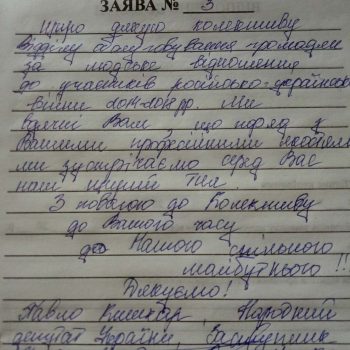 ЗАЯВА № 3
Щиро дякую колективу
Відділу обслуговування громадян
за людське відношення
до учасників російсько-української
війни 2014-2018рр. Ми
вдячні Вам, що поряд з
Вашими професійними
ми зустрічаємо серед Вас
З повагою до Колективу
до Вашого часу
до Нашого спільного
майбутнього!!
Дякуємо!
Павло Кишкар, Народний
депутат України, Заступник